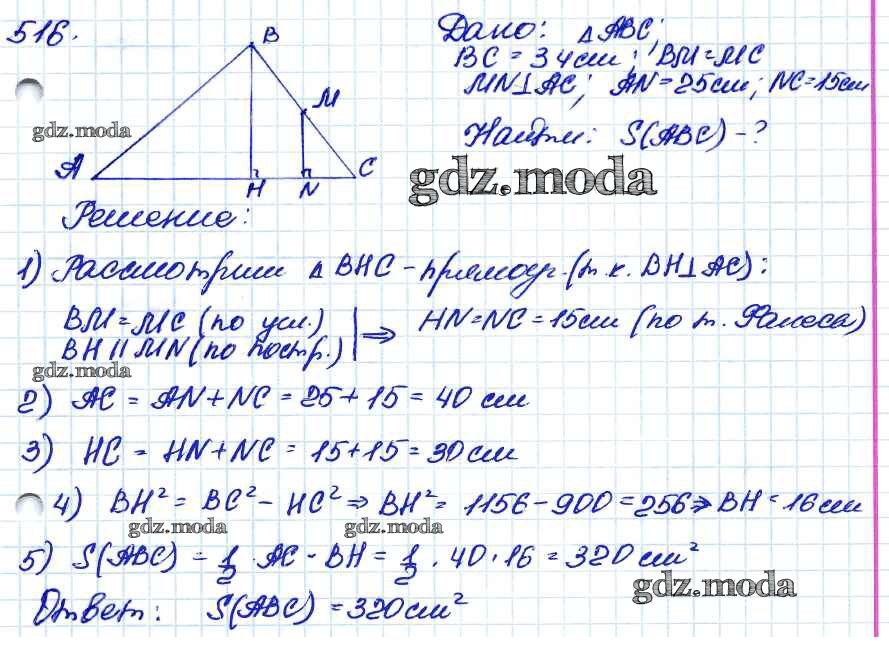 516.
Дано: △ABC;
BC = 34см; BM = MC
MN⊥AC; AN = 25см; NC = 15см
Найти: S(ABC) - ?
B
M
A
H
N
C
gdz.moda
gdz.moda
Решение:
1) Рассмотрим △BHC - прямоуг. (т.к. BH⊥AC):
BM = MC (по усл.) | ⇒ HN = NC = 15см (по т. Фалеса)
BH || MN (по постр.)
gdz.moda
2) AC = AN + NC = 25 + 15 = 40 см
3) HC = HN + NC = 15 + 15 = 30 см
4) BH² = BC² - HC² ⇒ BH² = 1156 - 900 = 256 ⇒ BH = 16 см
gdz.moda gdz.moda
5) S(ABC) = 1/2 · AC · BH = 1/2 · 40 · 16 = 320 см²
gdz.moda
Ответ: S(ABC) = 320 см²